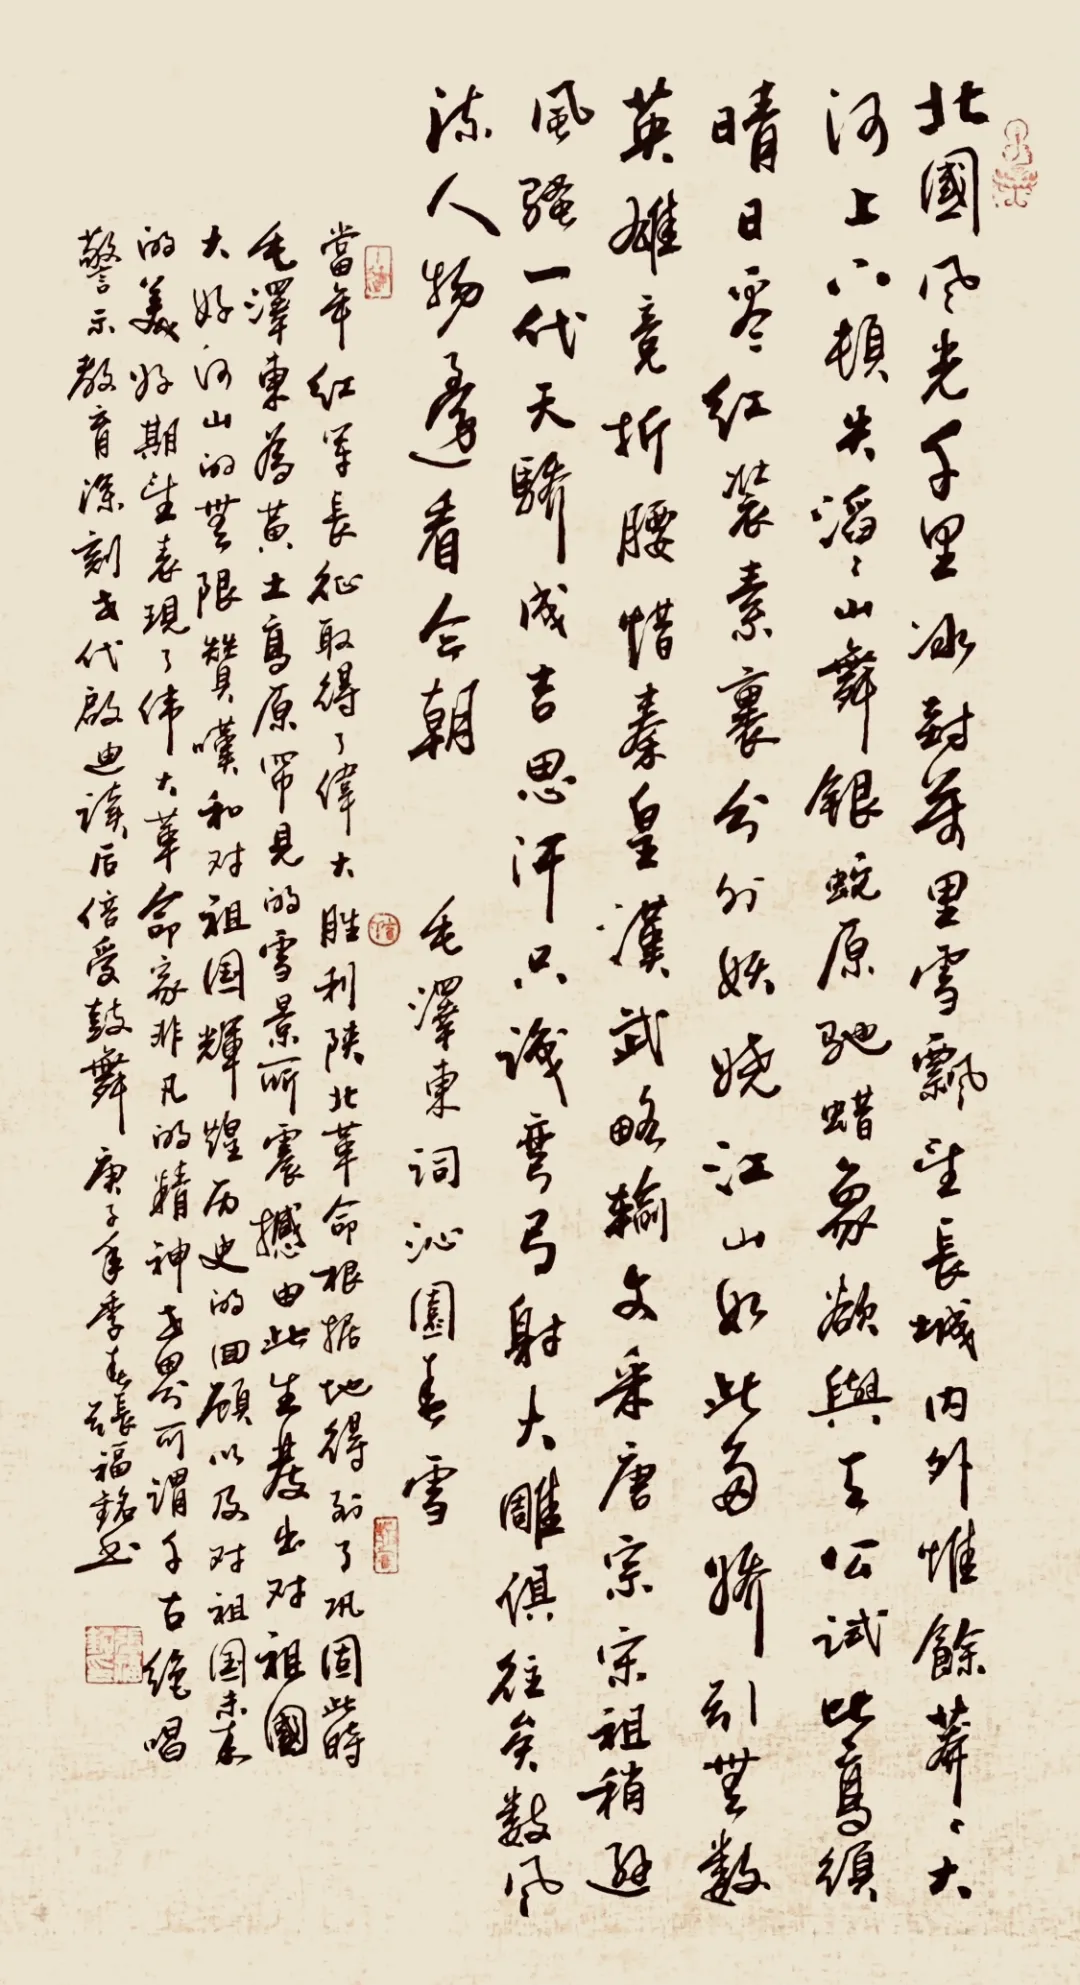 北國风光千里冰封萬里雪飄望長城内外惟餘莽〻大
河上下頓失滔〻山舞銀蛇原馳蜡象欲與天公試比高須
晴日零红裝素裹分外妖娆江山如此多娇引無数
英雄竞折腰惜秦皇漢武略输文采唐宗宋祖稍遜
風騷一代天驕成吉思汗只識彎弓射大雕俱往矣数风
流人物還看今朝 毛澤東词沁園春雪
當年红军長征取得了偉大胜利陕北革命根据地得到了巩固此時
毛澤東為黄土高原罕見的雪景所震撼由此生發出对祖國
大好河山的無限贊嘆和对祖国輝煌历史的回顧以及对祖国未来
的美好期望表現了伟大革命家非凡的精神世界可謂千古绝唱
警示教育深刻世代啟迪读后倍受鼓舞 庚子年季春張福銘书